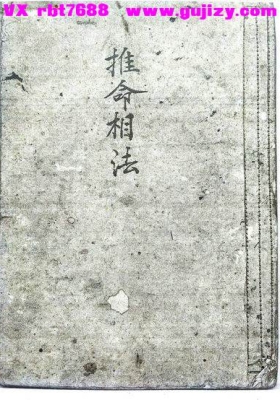 VX rbt7688 www.gujizy.com
推命相法